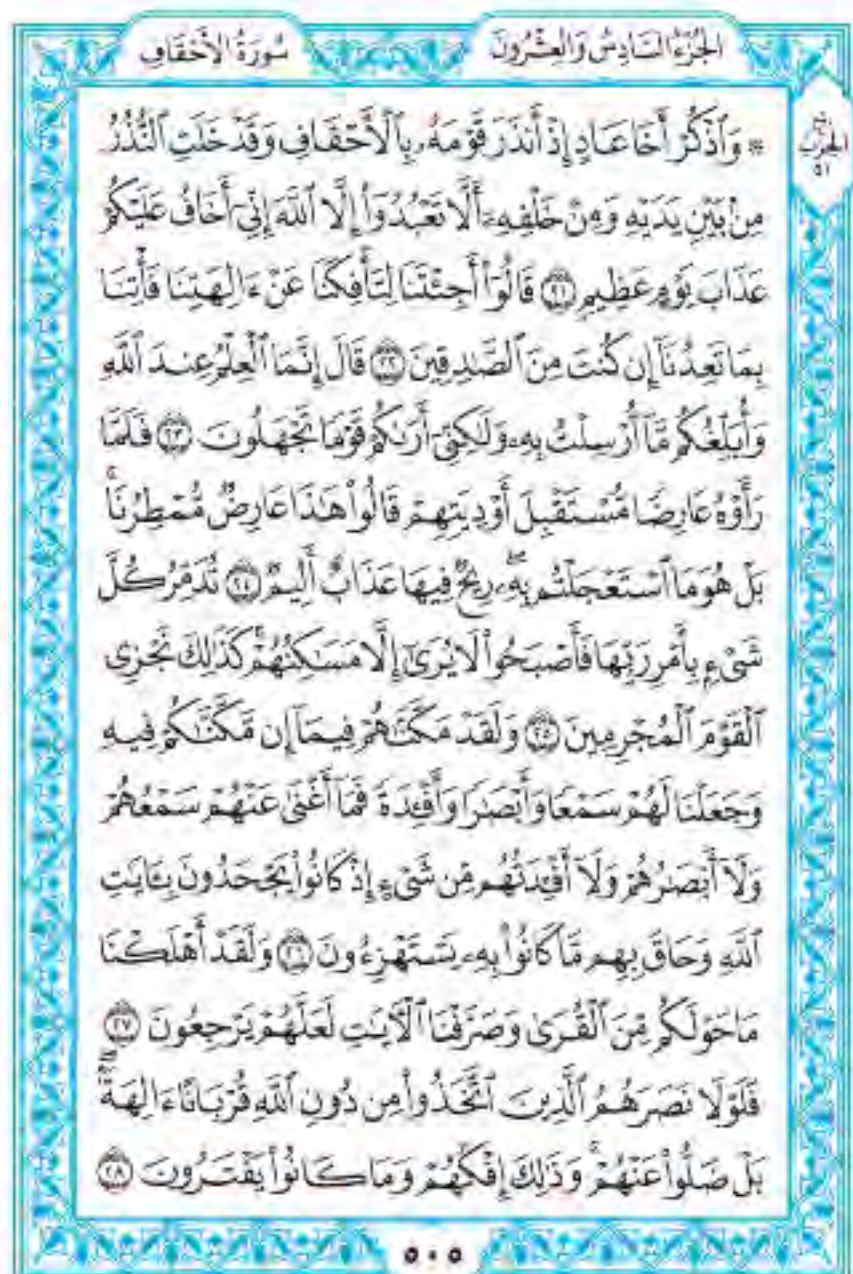 الجُزْءُ السَّادِسُ وَالعِشْرُونَ
سُورَةُ الأَحْقَافِ
رُبع
الحِزْب
٥١
۞ وَٱذۡكُرۡ أَخَا عَادٍ إِذۡ أَنذَرَ قَوۡمَهُۥ بِٱلۡأَحۡقَافِ وَقَدۡ خَلَتِ ٱلنُّذُرُ
مِنۢ بَيۡنِ يَدَيۡهِ وَمِنۡ خَلۡفِهِۦٓ أَلَّا تَعۡبُدُوٓاْ إِلَّا ٱللَّهَ إِنِّيٓ أَخَافُ عَلَيۡكُمۡ
عَذَابَ يَوۡمٍ عَظِيمٖ ٢١ قَالُوٓاْ أَجِئۡتَنَا لِتَأۡفِكَنَا عَنۡ ءَالِهَتِنَا فَأۡتِنَا
بِمَا تَعِدُنَآ إِن كُنتَ مِنَ ٱلصَّٰدِقِينَ ٢٢ قَالَ إِنَّمَا ٱلۡعِلۡمُ عِندَ ٱللَّهِ
وَأُبَلِّغُكُم مَّآ أُرۡسِلۡتُ بِهِۦ وَلَٰكِنِّيٓ أَرَىٰكُمۡ قَوۡمٗا تَجۡهَلُونَ ٢٣ فَلَمَّا
رَأَوۡهُ عَارِضٗا مُّسۡتَقۡبِلَ أَوۡدِيَتِهِمۡ قَالُواْ هَٰذَا عَارِضٞ مُّمۡطِرُنَاۚ
بَلۡ هُوَ مَا ٱسۡتَعۡجَلۡتُم بِهِۦۖ رِيحٞ فِيهَا عَذَابٌ أَلِيمٞ ٢٤ تُدَمِّرُ كُلَّ
شَيۡءِۭ بِأَمۡرِ رَبِّهَا فَأَصۡبَحُواْ لَا يُرَىٰٓ إِلَّا مَسَٰكِنُهُمۡۚ كَذَٰلِكَ نَجۡزِي
ٱلۡقَوۡمَ ٱلۡمُجۡرِمِينَ ٢٥ وَلَقَدۡ مَكَّنَّٰهُمۡ فِيمَآ إِن مَّكَّنَّٰكُمۡ فِيهِ
وَجَعَلۡنَا لَهُمۡ سَمۡعٗا وَأَبۡصَٰرٗا وَأَفۡـِٔدَةٗ فَمَآ أَغۡنَىٰ عَنۡهُمۡ سَمۡعُهُمۡ
وَلَآ أَبۡصَٰرُهُمۡ وَلَآ أَفۡـِٔدَتُهُم مِّن شَيۡءٍ إِذۡ كَانُواْ يَجۡحَدُونَ بِـَٔايَٰتِ
ٱللَّهِ وَحَاقَ بِهِم مَّا كَانُواْ بِهِۦ يَسۡتَهۡزِءُونَ ٢٦ وَلَقَدۡ أَهۡلَكۡنَا
مَا حَوۡلَكُم مِّنَ ٱلۡقُرَىٰ وَصَرَّفۡنَا ٱلۡأٓيَٰتِ لَعَلَّهُمۡ يَرۡجِعُونَ ٢٧
فَلَوۡلَا نَصَرَهُمُ ٱلَّذِينَ ٱتَّخَذُواْ مِن دُونِ ٱللَّهِ قُرۡبَانًا ءَالِهَةَۢۖ
بَلۡ ضَلُّواْ عَنۡهُمۡۚ وَذَٰلِكَ إِفۡكُهُمۡ وَمَا كَانُواْ يَفۡتَرُونَ ٢٨
٥٠٥